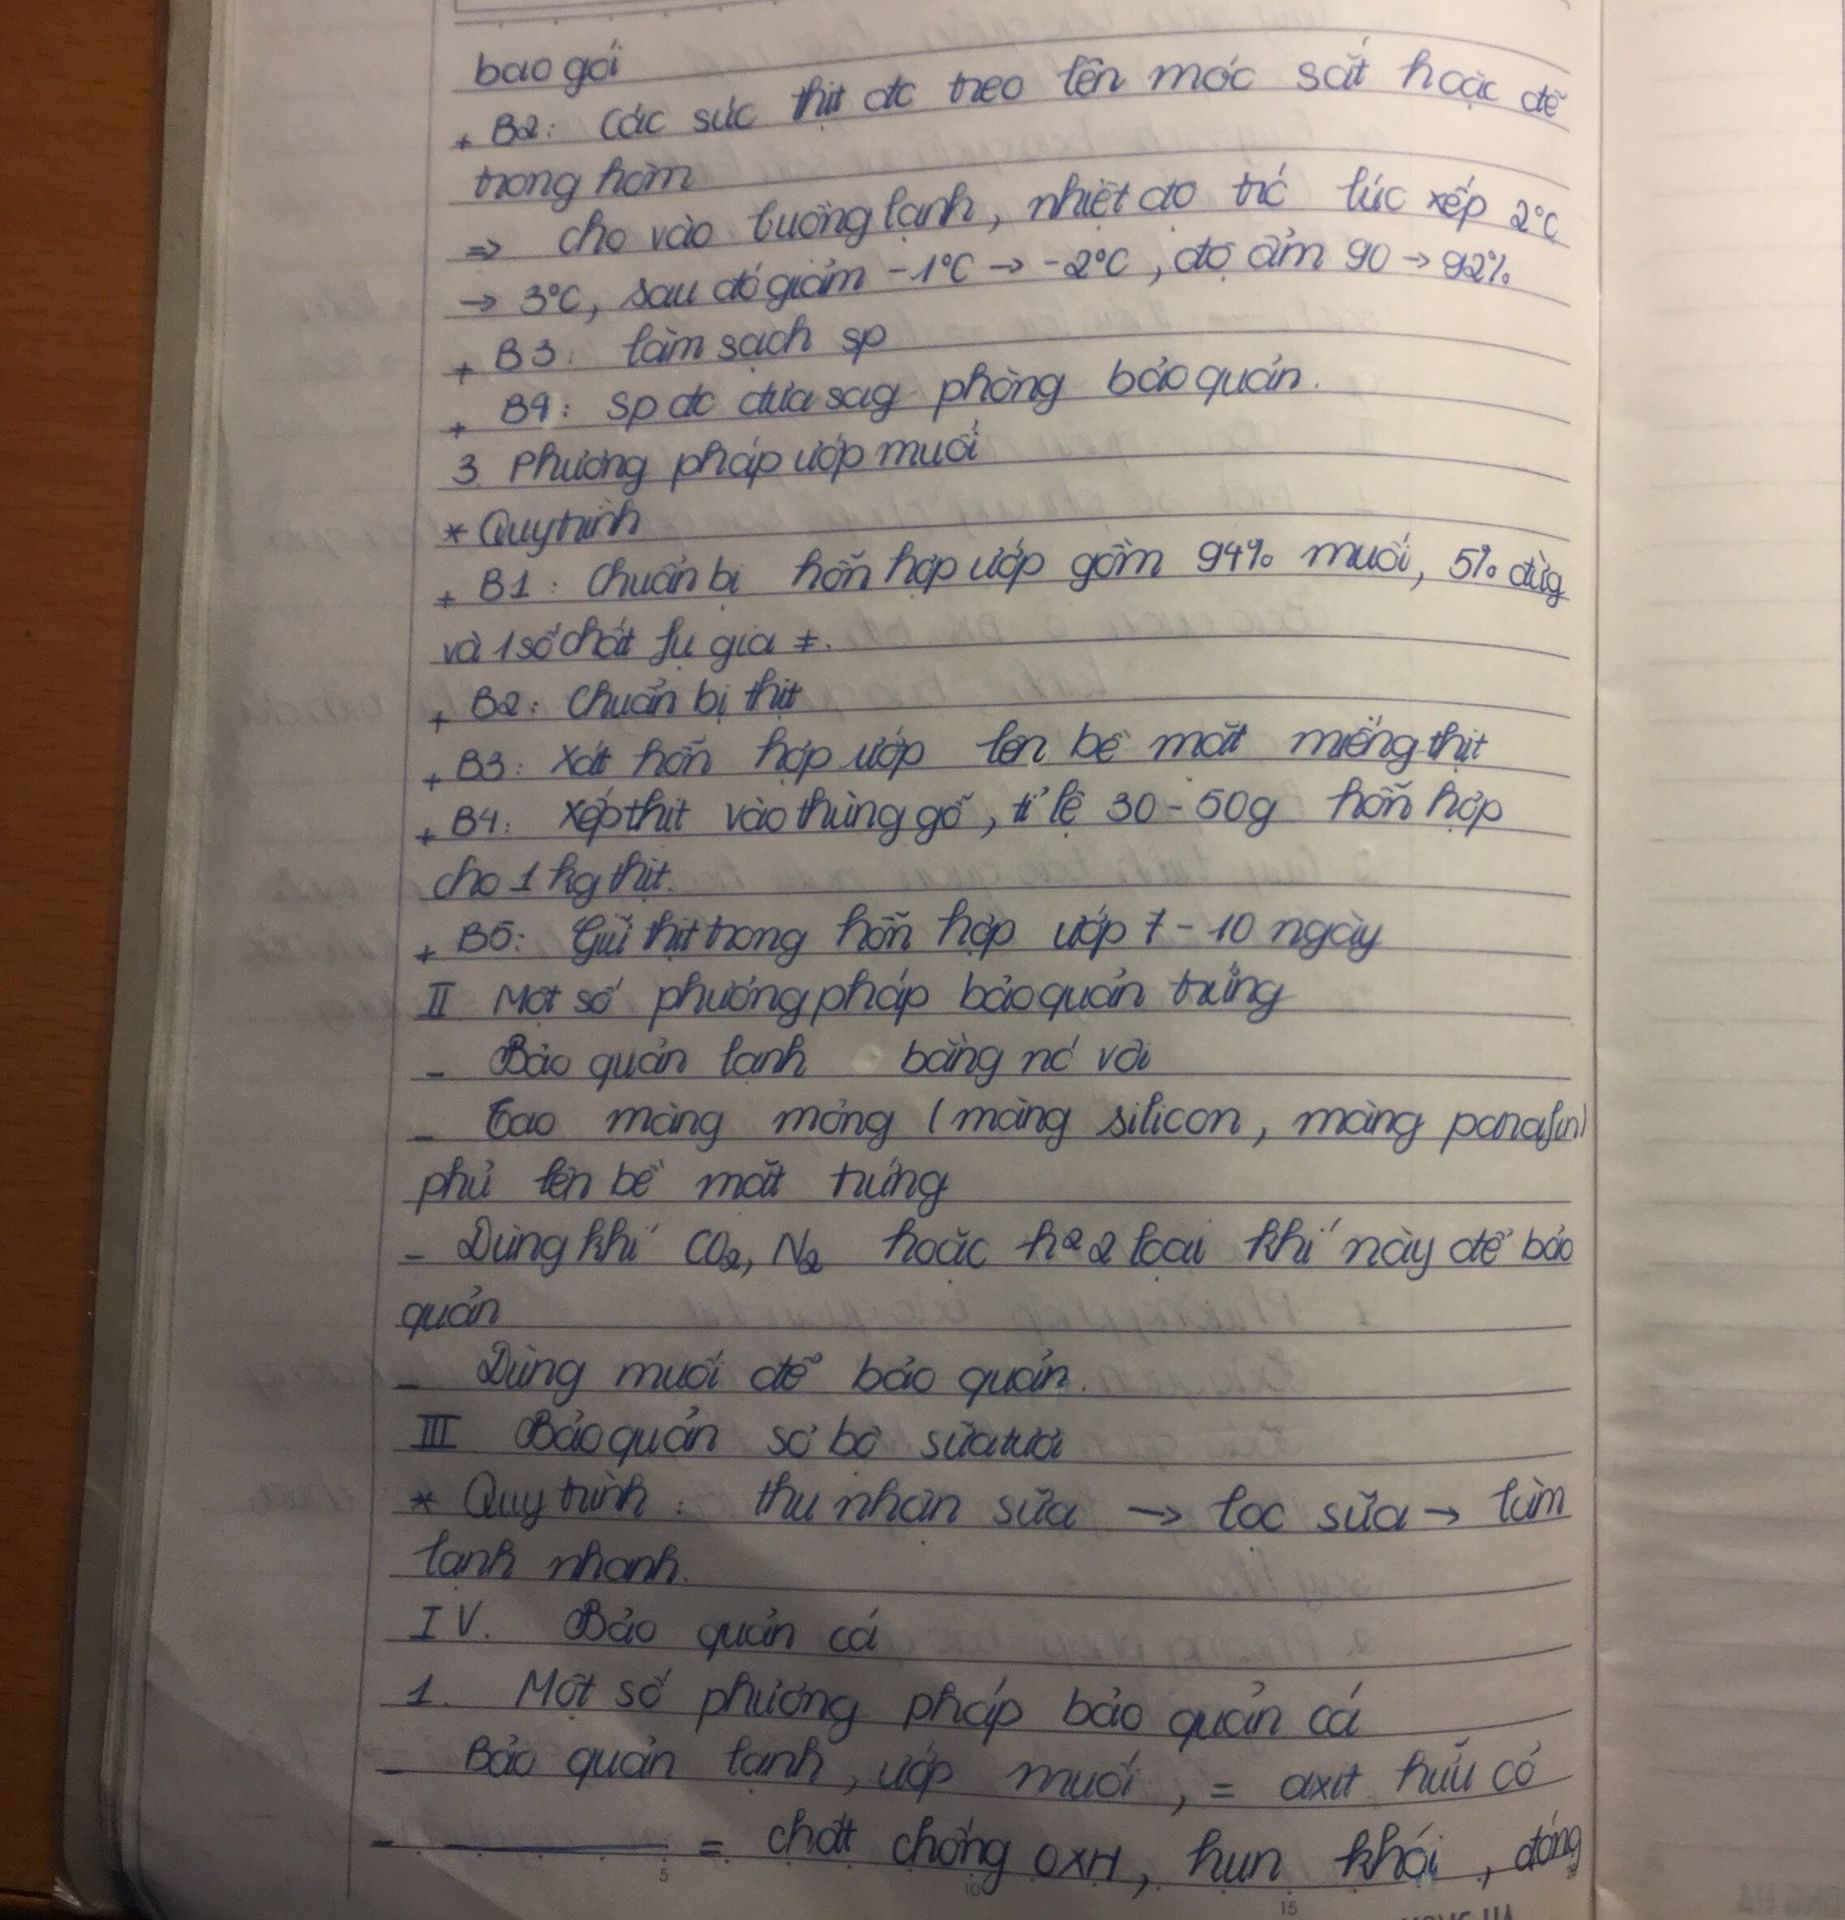 bao gói
+ B2: Các súc thịt đc treo lên móc sắt hoặc để
trong hòm
=> cho vào buồng lạnh, nhiệt độ trc lúc xếp 2°C
→ 3°C, sau đó giảm -1°C → -2°C, độ ẩm 90 → 92%
+ B3: làm sạch sp
+ B4: sp đc đưa sag phòng bảo quản.
3. Phương pháp ướp muối
* Quy trình
+ B1: Chuẩn bị hỗn hợp ướp gồm 94% muối, 5% đừg
và 1 số chất fụ gia ≠.
+ B2: Chuẩn bị thịt
+ B3: Xát hỗn hợp ướp lên bề mặt miếng thịt
+ B4: Xếp thịt vào thùng gỗ, tỉ lệ 30-50g hỗn hợp
cho 1 kg thịt.
+ B5: Giữ thịt trong hỗn hợp ướp 7-10 ngày
II Một số phương pháp bảo quản trứng
- Bảo quản lạnh bằng nc vôi
- Tạo màng mỏng (màng silicon, màng parafin)
phủ lên bề mặt trứng
- Dùng khí CO2, N2 hoặc h2 2 loại khí này để bảo
quản
- Dùng muối để bảo quản.
III Bảo quản sơ bộ sữa tươi
* Quy trình: thu nhận sữa → lọc sữa → làm
lạnh nhanh.
IV. Bảo quản cá
1. Một số phương pháp bảo quản cá
- Bảo quản lạnh, ướp muối, = axit hữu cơ
- = chất chống OXH, hun khói, đóng
5 10 15